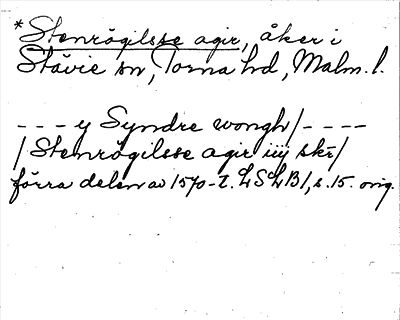 *Stenrögilsse agir, åker i
Stävie sn, Torna hd, Malm. l.
- - - y Syndre wongh / - - - -
/ Stenrögilsse agir iiij skr /
förra delen av 1570-t. LSLB1, s. 15. orig.